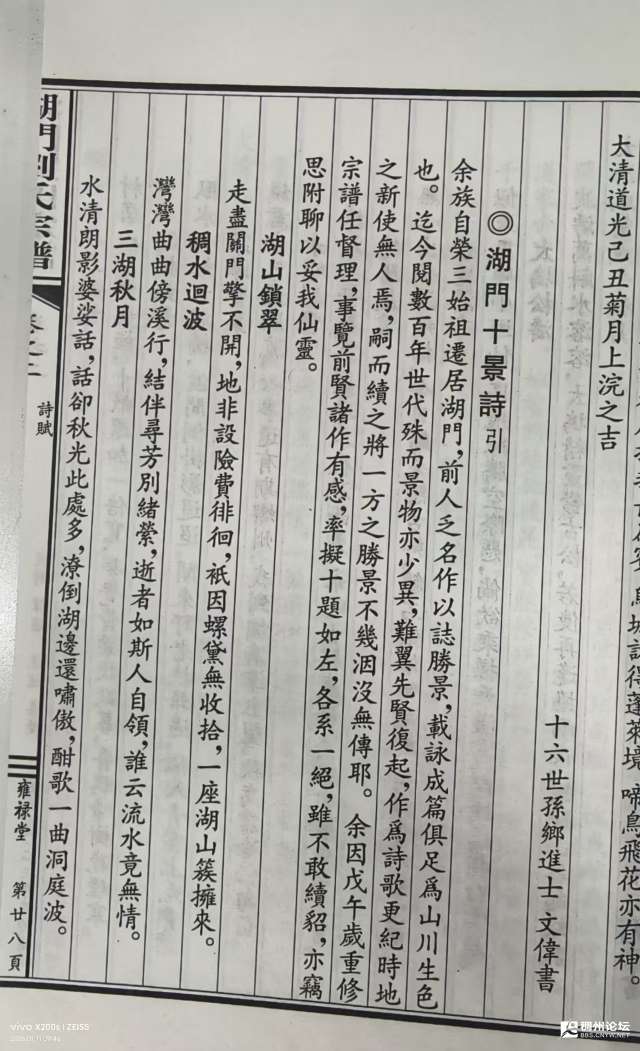 得蓬萊境，啼鳥飛花亦有神。
大清道光己丑菊月上浣之吉
十六世孫鄉進士 文偉書
◎湖門十景詩引
余族自榮三始祖遷居湖門，前人乏名作以誌勝景，載詠成篇俱足爲山川生色
也。迄今閱數百年世代殊而景物亦少異，難翼先賢復起，作爲詩歌更紀時地
之新使無人焉，嗣而續之將一方之勝景不幾洇沒無傳耶。余因戊午歲重修
宗譜任督理，事覽前賢諸作有感，率擬十題如左，各系一絕，雖不敢續貂，亦竊
思附聊以妥我仙靈。
湖山鎖翠
走盡關門擎不開，地非設險費徘徊，衹因螺黛無收拾，一座湖山簇擁來。
稠水迴波
灣灣曲曲傍溪行，結伴尋芳別緒縈，逝者如斯人自領，誰云流水竟無情。
三湖秋月
水清朗影婆娑話，話卻秋光此處多，潦倒湖邊還嘯傲，酣歌一曲洞庭波。
湖門劉氏宗譜
卷之二
詩賦
雍禄堂
第廿八頁
vivo X200s | ZEISS
稠州论坛
BBS.CNYW.NET